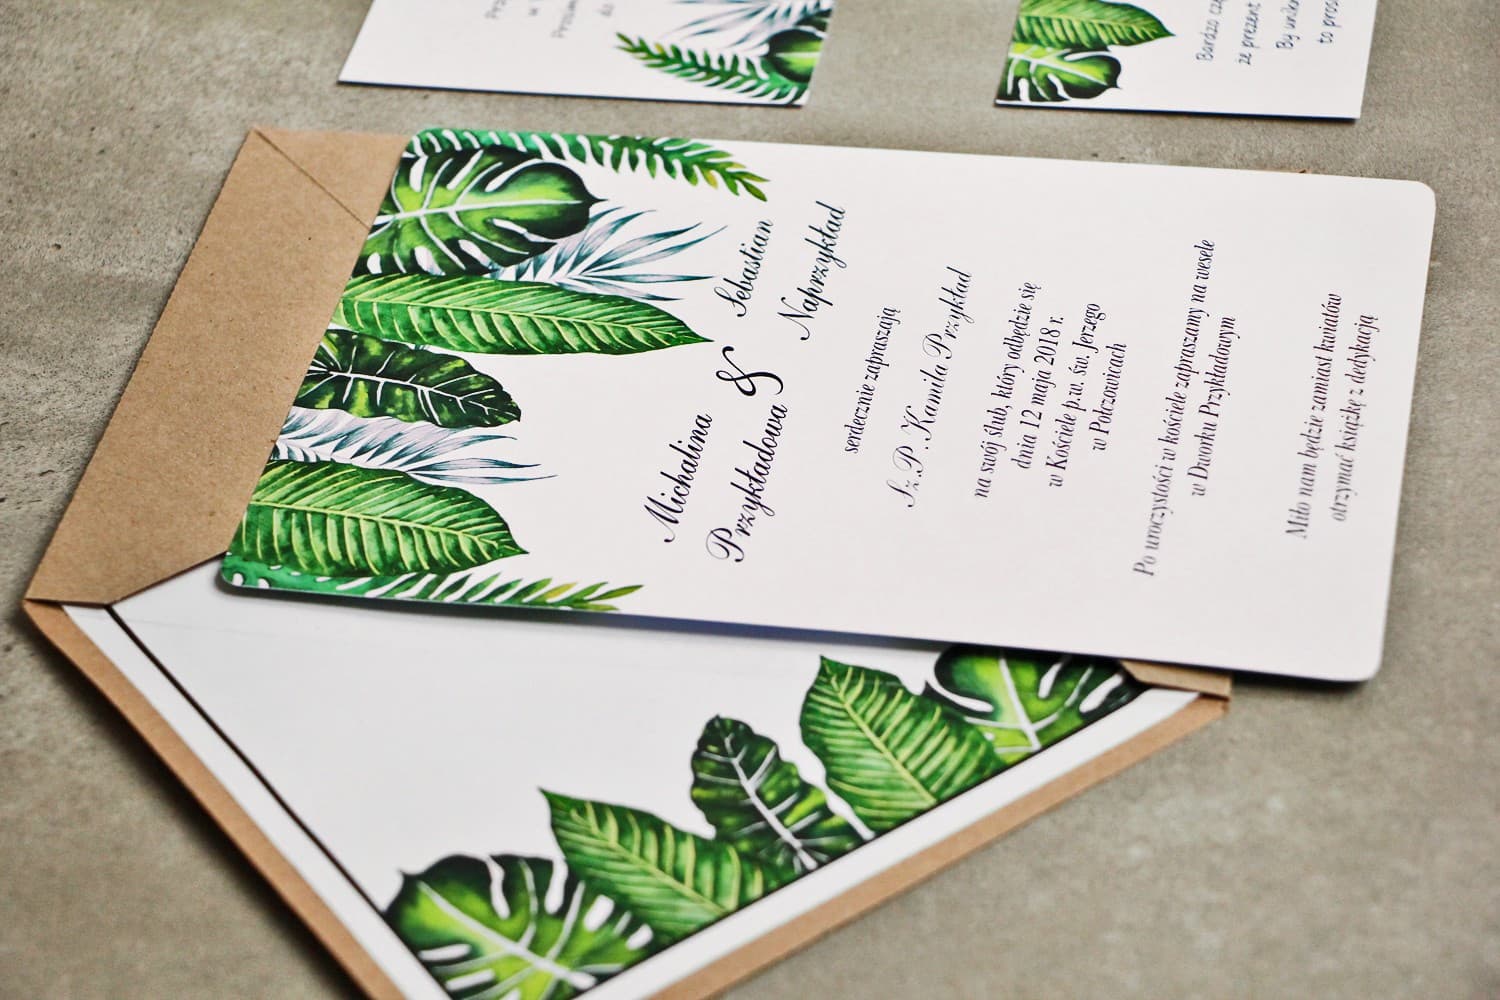 Michalina
Przykładowa
&
Sebastian
Naprzykład
serdecznie zapraszają
Sz.P. Kamila Przykład
na swój ślub, który odbędzie się
dnia 12 maja 2018 r.
w Kościele p.w. św. Jerzego
w Połczowicach
Po uroczystości w kościele zapraszamy na wesele
w Dworku Przykładowym
Miło nam będzie zamiast kwiatów
otrzymać książkę z dedykacją
Bardzo
że prezent
By
to